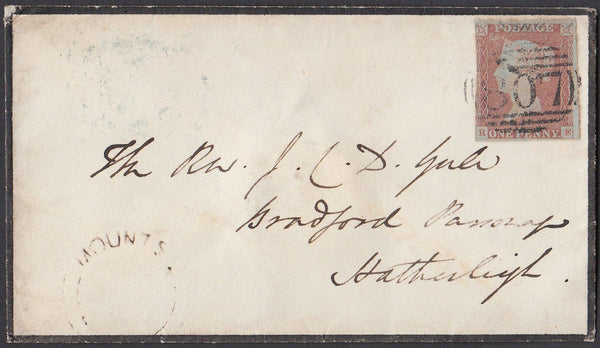 POSTAGE
607
R E
ONE PENNY
The Rev. J. C. D. Yule
Bradford Parsonage
Hatherleigh.
MOUNTS